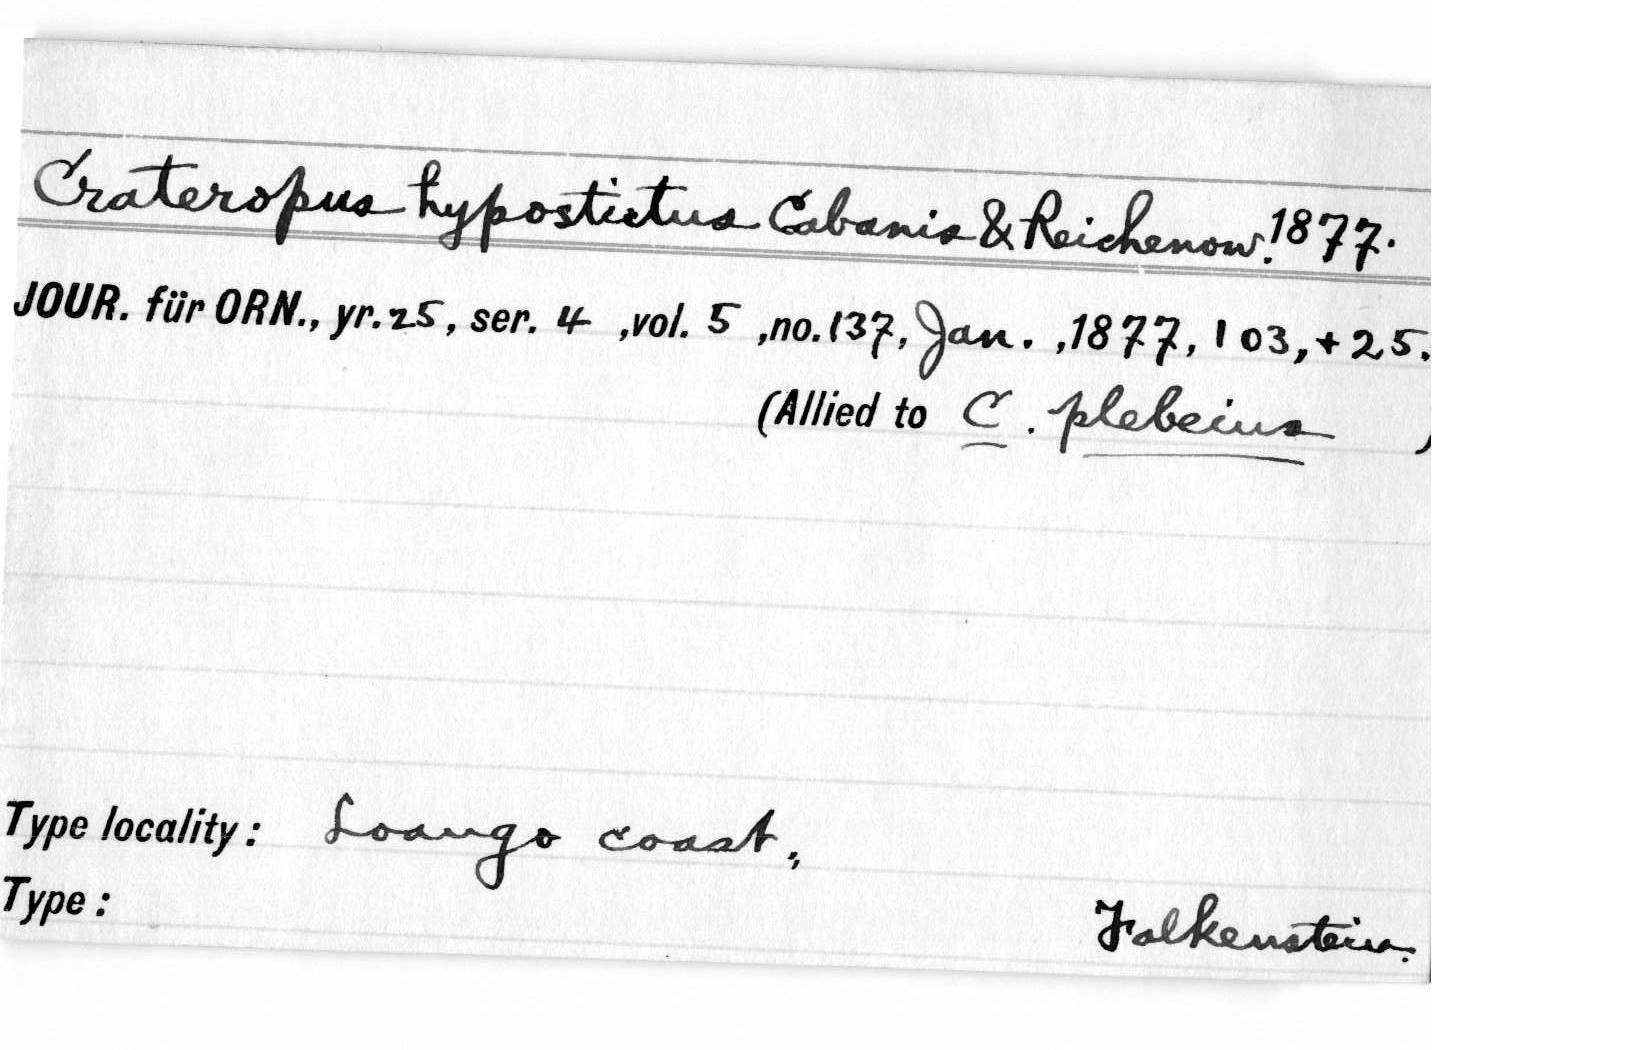 Crateropus hypostictus Cabanis & Reichenow. 1877.
JOUR. für ORN., yr. 25, ser. 4 ,vol. 5 ,no. 137, Jan. ,1877, 103, + 25.
(Allied to C. plebeius )
Type locality: Loango coast,
Type: Falkenstein.